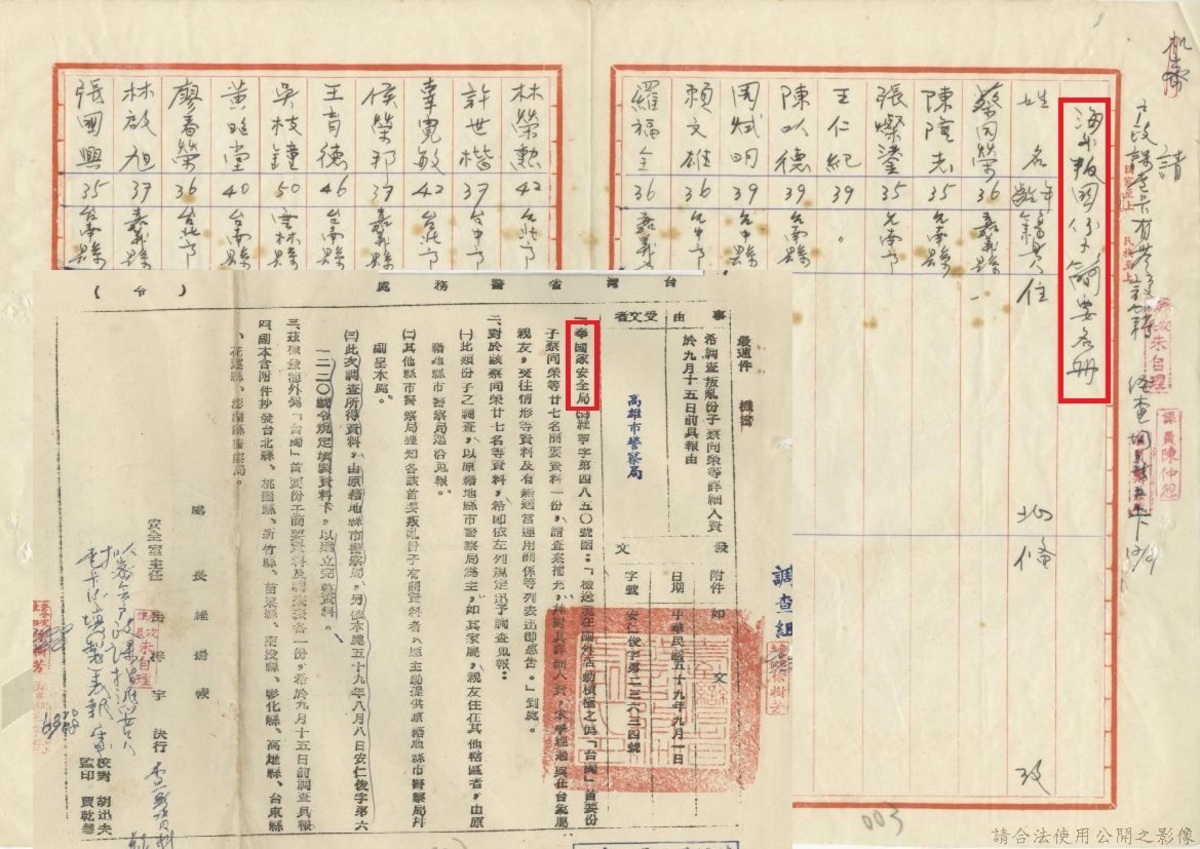 海外叛國份子簡要名冊
姓名 年齡 籍貫 住 址 備 攷
蔡同榮 36 嘉義縣
陳隆志 35 台南縣
張燦鍙 35 台南市
王仁紀 39 〃
陳以德 39 嘉義縣
周斌明 39 台中縣
賴文雄 36 台中市
羅福全 36 嘉義市
林榮勳 42 台北市
許世楷 37 台中市
辜寬敏 42 台北市
侯榮邦 37 嘉義縣
王育德 46 台南縣
吳枝鐘 50 雲林縣
黃昭堂 40 台南縣
廖春榮 36 台北市
林啟旭 37 嘉義縣
張國興 35 台南縣
台灣省警務處(令)
最速件 機密
事由
為調查叛亂份子蔡同榮等詳細人資
於九月十五日前具報由
受文者
高雄市警察局
發文
附件 如文
日期 中華民國五十九年九月一日
字號 安仁俊字第二三六三四號
一、奉國家安全局
字第四八五〇號函:「檢送現在國外活動積極之偽「台獨」首要份
子蔡同榮等廿七名簡要資料一份,請查案補充,並對其詳細人資,求學經過與在台家屬
親友,來往情形等資料及有無適當運用關係等列表迅即惠告。」到處。
二、對於該蔡同榮廿七名等資料,希即依左列規定迅予調查蒐報:
㈠此類份子之調查,以原籍地縣市警察局為主,如其家屬,親友住在其他轄區者,由原
籍地縣市警察局逕洽蒐報。
㈡其他縣市警察局獲知各該首要叛亂份子有關資料者,應主動提供原籍地縣市警察局并
副呈本處。
㈢此次調查所得資料,由原籍地縣市警察局,另依本處五十九年八月八日安仁俊字第六
一二二〇號令規定填製資料卡,以建立完整資料。
三、茲檢發海外偽「台獨」首要份子簡要資料及調查表各一份,希於九月十五日前調查具報
四、副本含附件抄發台北縣、桃園縣、新竹縣、苗栗縣、南投縣、彰化縣、高雄縣、台東縣
、花蓮縣、澎湖縣警察局。
處長 羅揚鞭
安全室主任
決行
校對 胡迅夫
監印 賈乾馨
調查組
課員陳仲
朱自理
003
請合法使用公開之影像